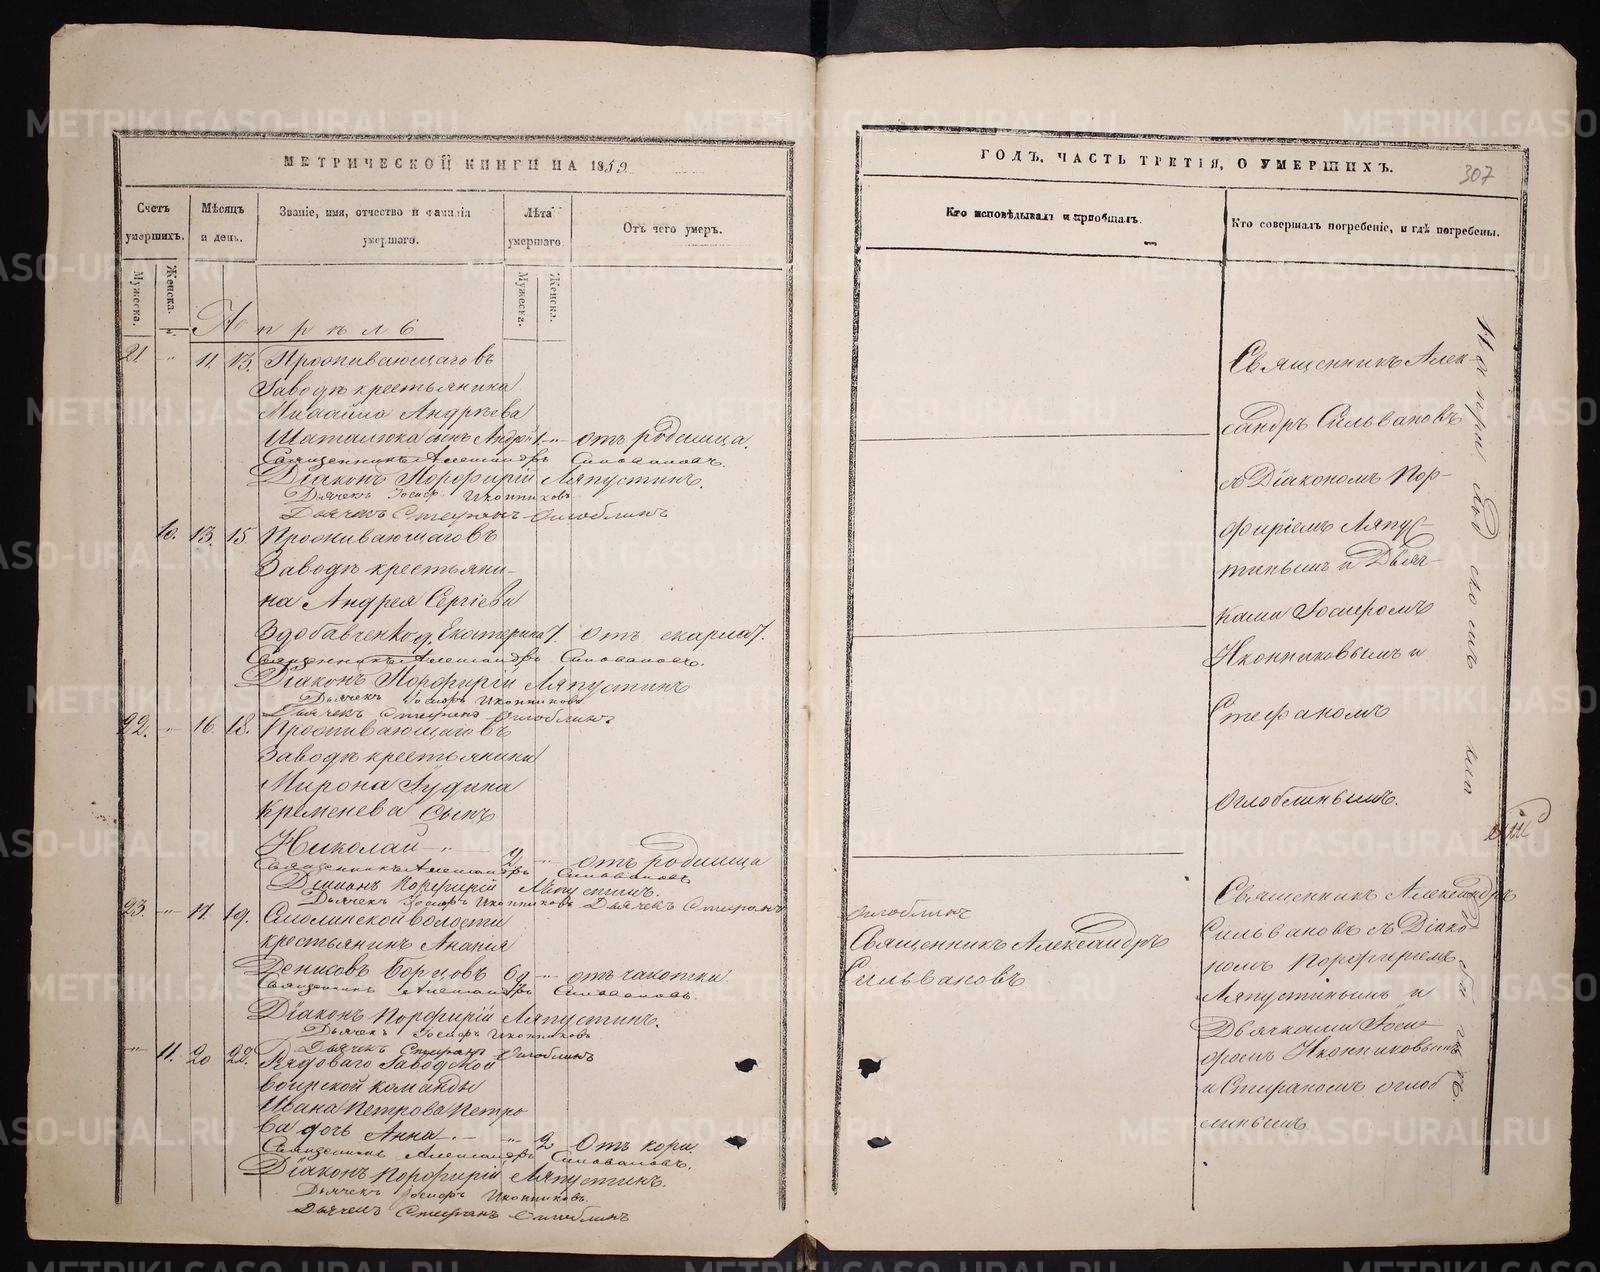 МЕТРИЧЕСКОЙ КНИГИ НА 1859
Счетъ умершихъ.
Мѣсяцъ и день.
Званіе, имя, отчество и фамилія умершаго.
Лѣта умершаго
Отъ чего умеръ.
Мужеска.
Женска.
Мужеска.
Женска.
Апрѣль
21 " 11. 13. Проживающаго въ
Заводѣ крестьянина
Михаила Андрѣева
сынъ Андрей 1. " отъ родимца.
Священникъ Александръ Сильвановъ.
Діаконъ Порфирій Ляпустинъ.
Дьячекъ Іосифъ Иконниковъ
Дьячекъ Стефанъ Оглоблинъ
10. 13. 15. Проживающаго въ
Заводѣ крестьяни-
на Андрея Сергіева
Здобавченко д. Екатерина 7. отъ скарлат.
Священникъ Александръ Сильвановъ.
Діаконъ Порфирій Ляпустинъ
Дьячекъ Іосифъ Иконниковъ
Дьячекъ Стефанъ Оглоблинъ
22. " 16. 18. Проживающаго въ
Заводѣ крестьянина
Мирона
Кременева сынъ
Николай " 2. " отъ родимца
Священникъ Александръ Сильвановъ
Діаконъ Порфирій Ляпустинъ.
Дьячекъ Іосифъ Иконниковъ Дьячекъ Стефанъ
23. " 17. 19. Смолинской волости
крестьянинъ Ананія
Денисовъ Борцовъ 69 " отъ чахотки
Священникъ Александръ Сильвановъ.
Діаконъ Порфирій Ляпустинъ.
Дьячекъ Іосифъ Иконниковъ
Дьячекъ Стефанъ Оглоблинъ
" 11. 20 22. Рядоваго Заводской
воинской команды
Ивана Петрова Петро
ва дочь Анна " 2 Отъ кори.
Священникъ Александръ Сильвановъ.
Діаконъ Порфирій Ляпустинъ.
Дьячекъ Іосифъ Иконниковъ.
Дьячекъ Стефанъ Оглоблинъ
ГОДЪ, ЧАСТЬ ТРЕТІЯ, О УМЕРШИХЪ.
307
Кто исповѣдывалъ и пріобщалъ.
Кто совершалъ погребеніе, и гдѣ погребены.
Священникъ Алек-
сандръ Сильвановъ
съ Діакономъ Пор-
фиріемъ Ляпус-
тинымъ и Дьяч-
ками Іосифомъ
Иконниковымъ и
Стефаномъ
Оглоблинымъ.
Оглоблинъ
Священникъ Александръ
Сильвановъ
Священникъ Александръ
Сильвановъ съ Діако
номъ Порфиріемъ
Ляпустинымъ и
Дьячками Іоси
фомъ Иконниковымъ
и Стефаномъ Оглоб
линымъ
На приходскомъ кладбищѣ.
METRIKI.GASO-URAL.RU